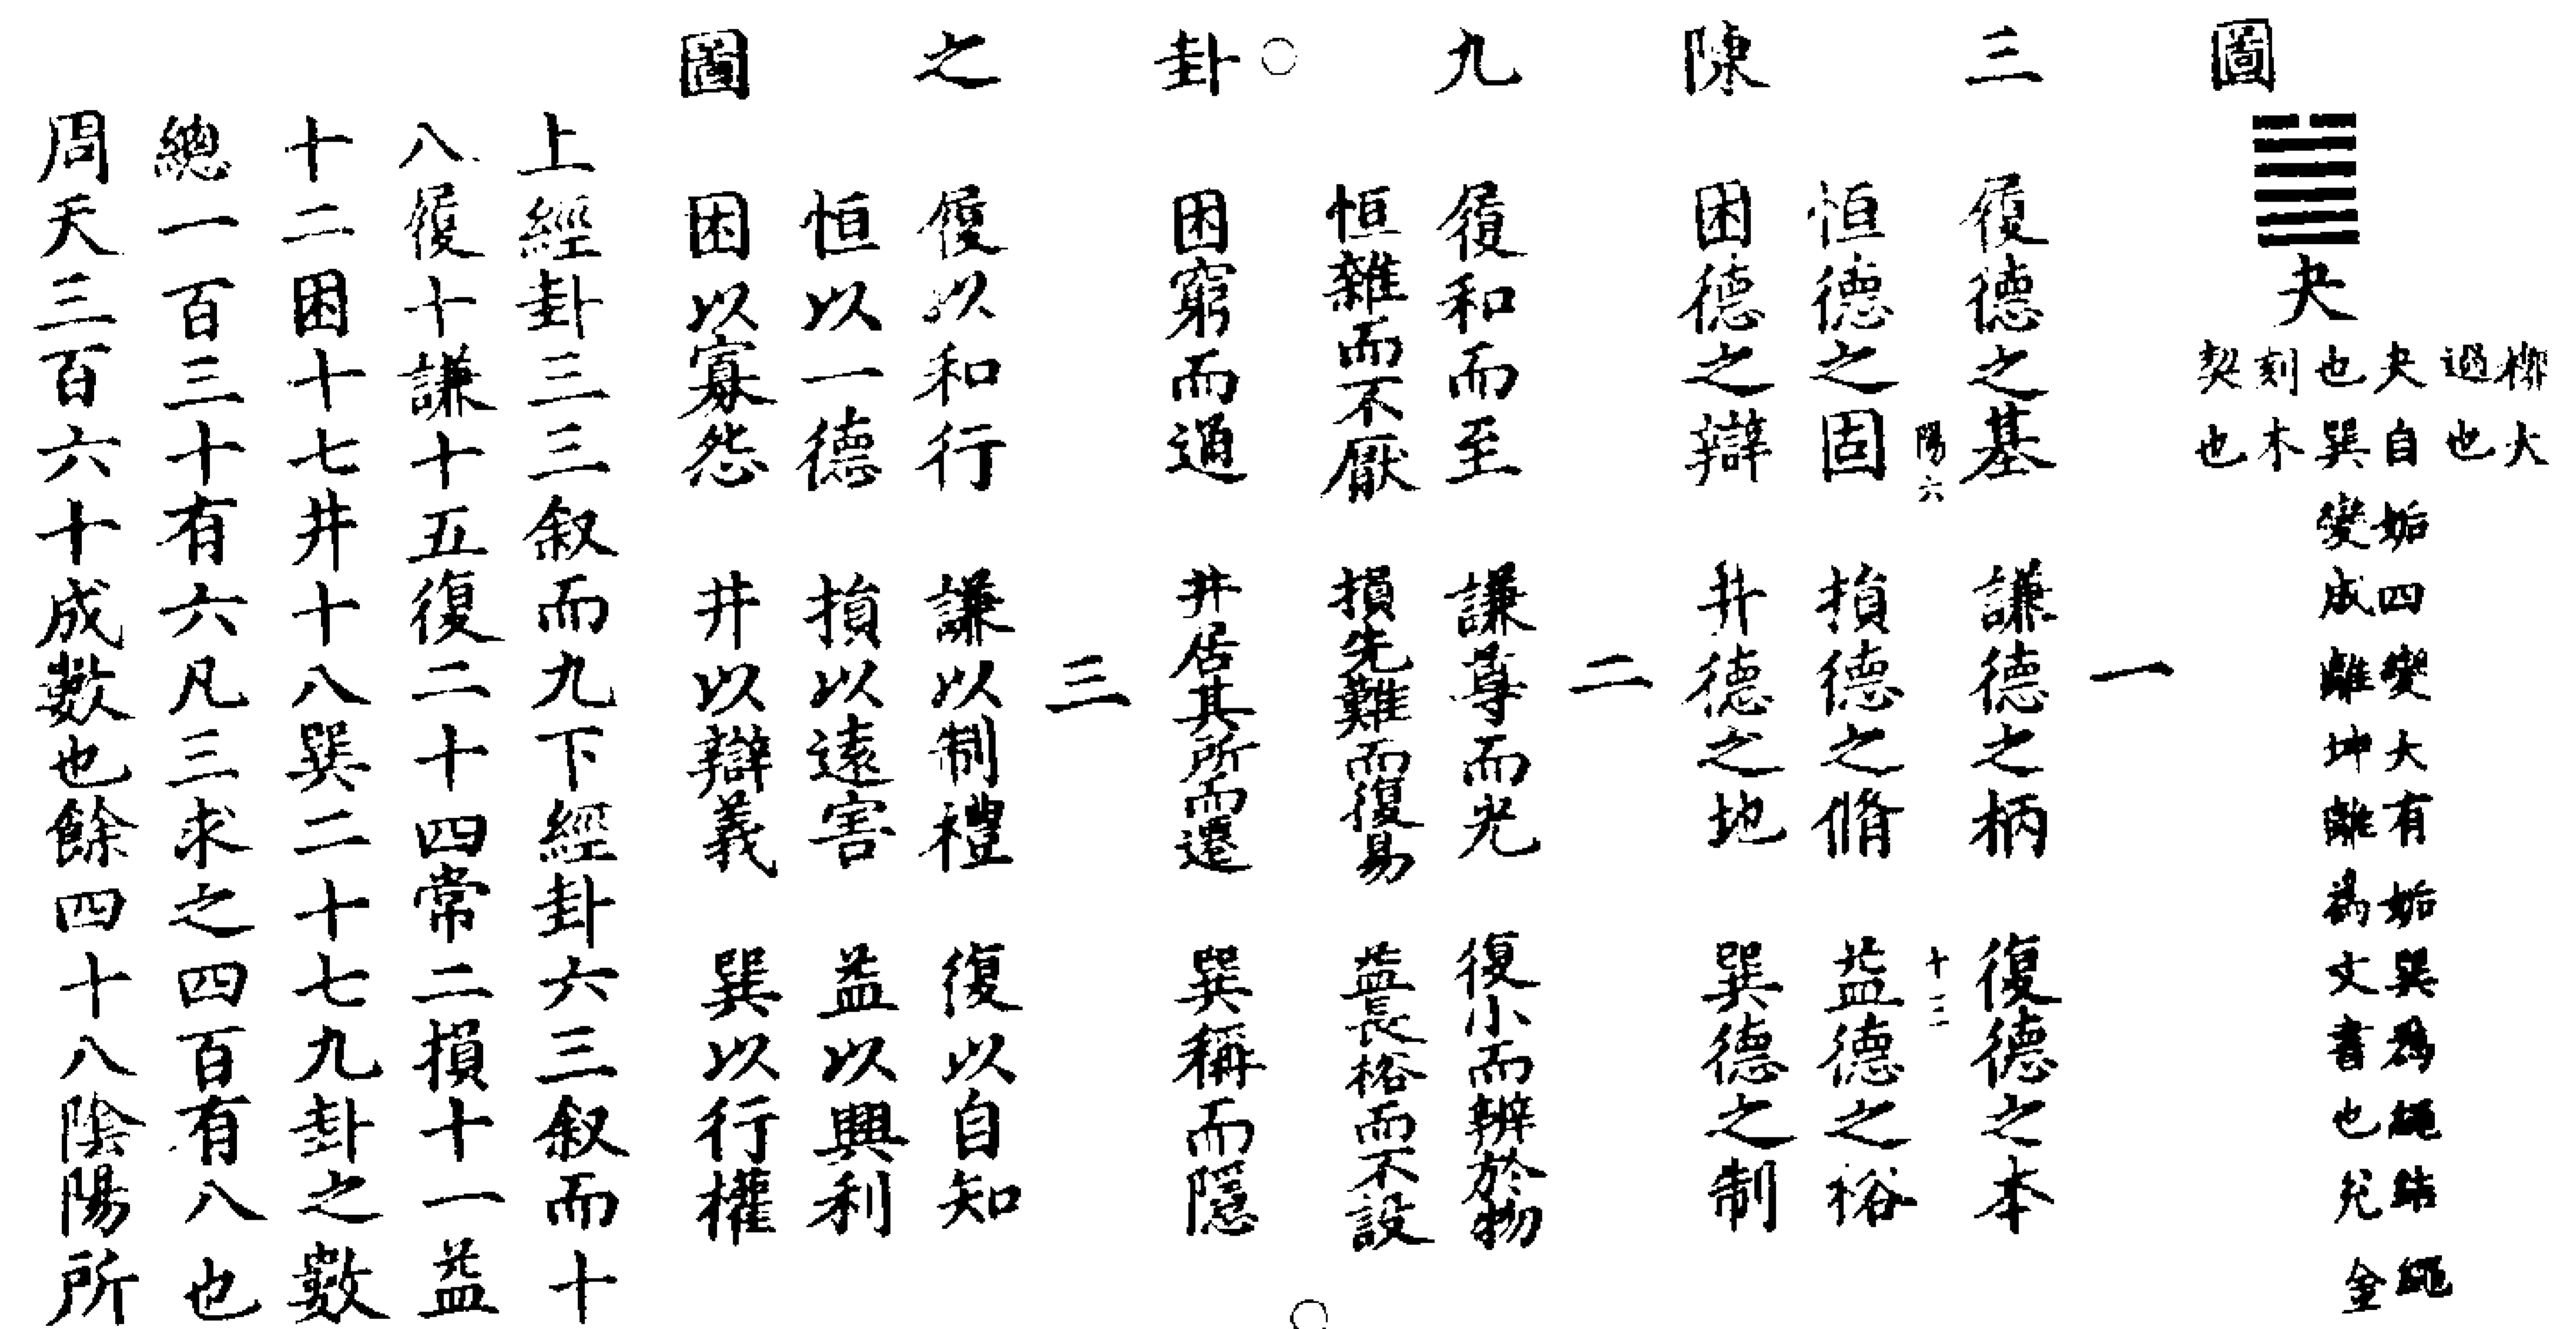 圖
夬
椁大
過也
夬自姤四變大有姤巽為繩結繩
也巽變成離坤離為文書也兌金
刻木
契也
三陳九卦之圖
一
履德之基 謙德之柄 復德之本
陽六 十三
恒德之固 損德之脩 益德之裕
困德之辯 井德之地 巽德之制
二
履和而至 謙尊而光 復小而辨於物
恒雜而不厭 損先難而復易 益長裕而不設
困窮而通 井居其所而遷 巽稱而隱
三
履以和行 謙以制禮 復以自知
恒以一德 損以遠害 益以興利
困以寡怨 井以辯義 巽以行權
上經卦三三叙而九下經卦六三叙而十
八履十謙十五復二十四常二損十一益
十二困十七井十八巽二十七九卦之數
總一百三十有六凡三求之四百有八也
周天三百六十成數也餘四十八陰陽所